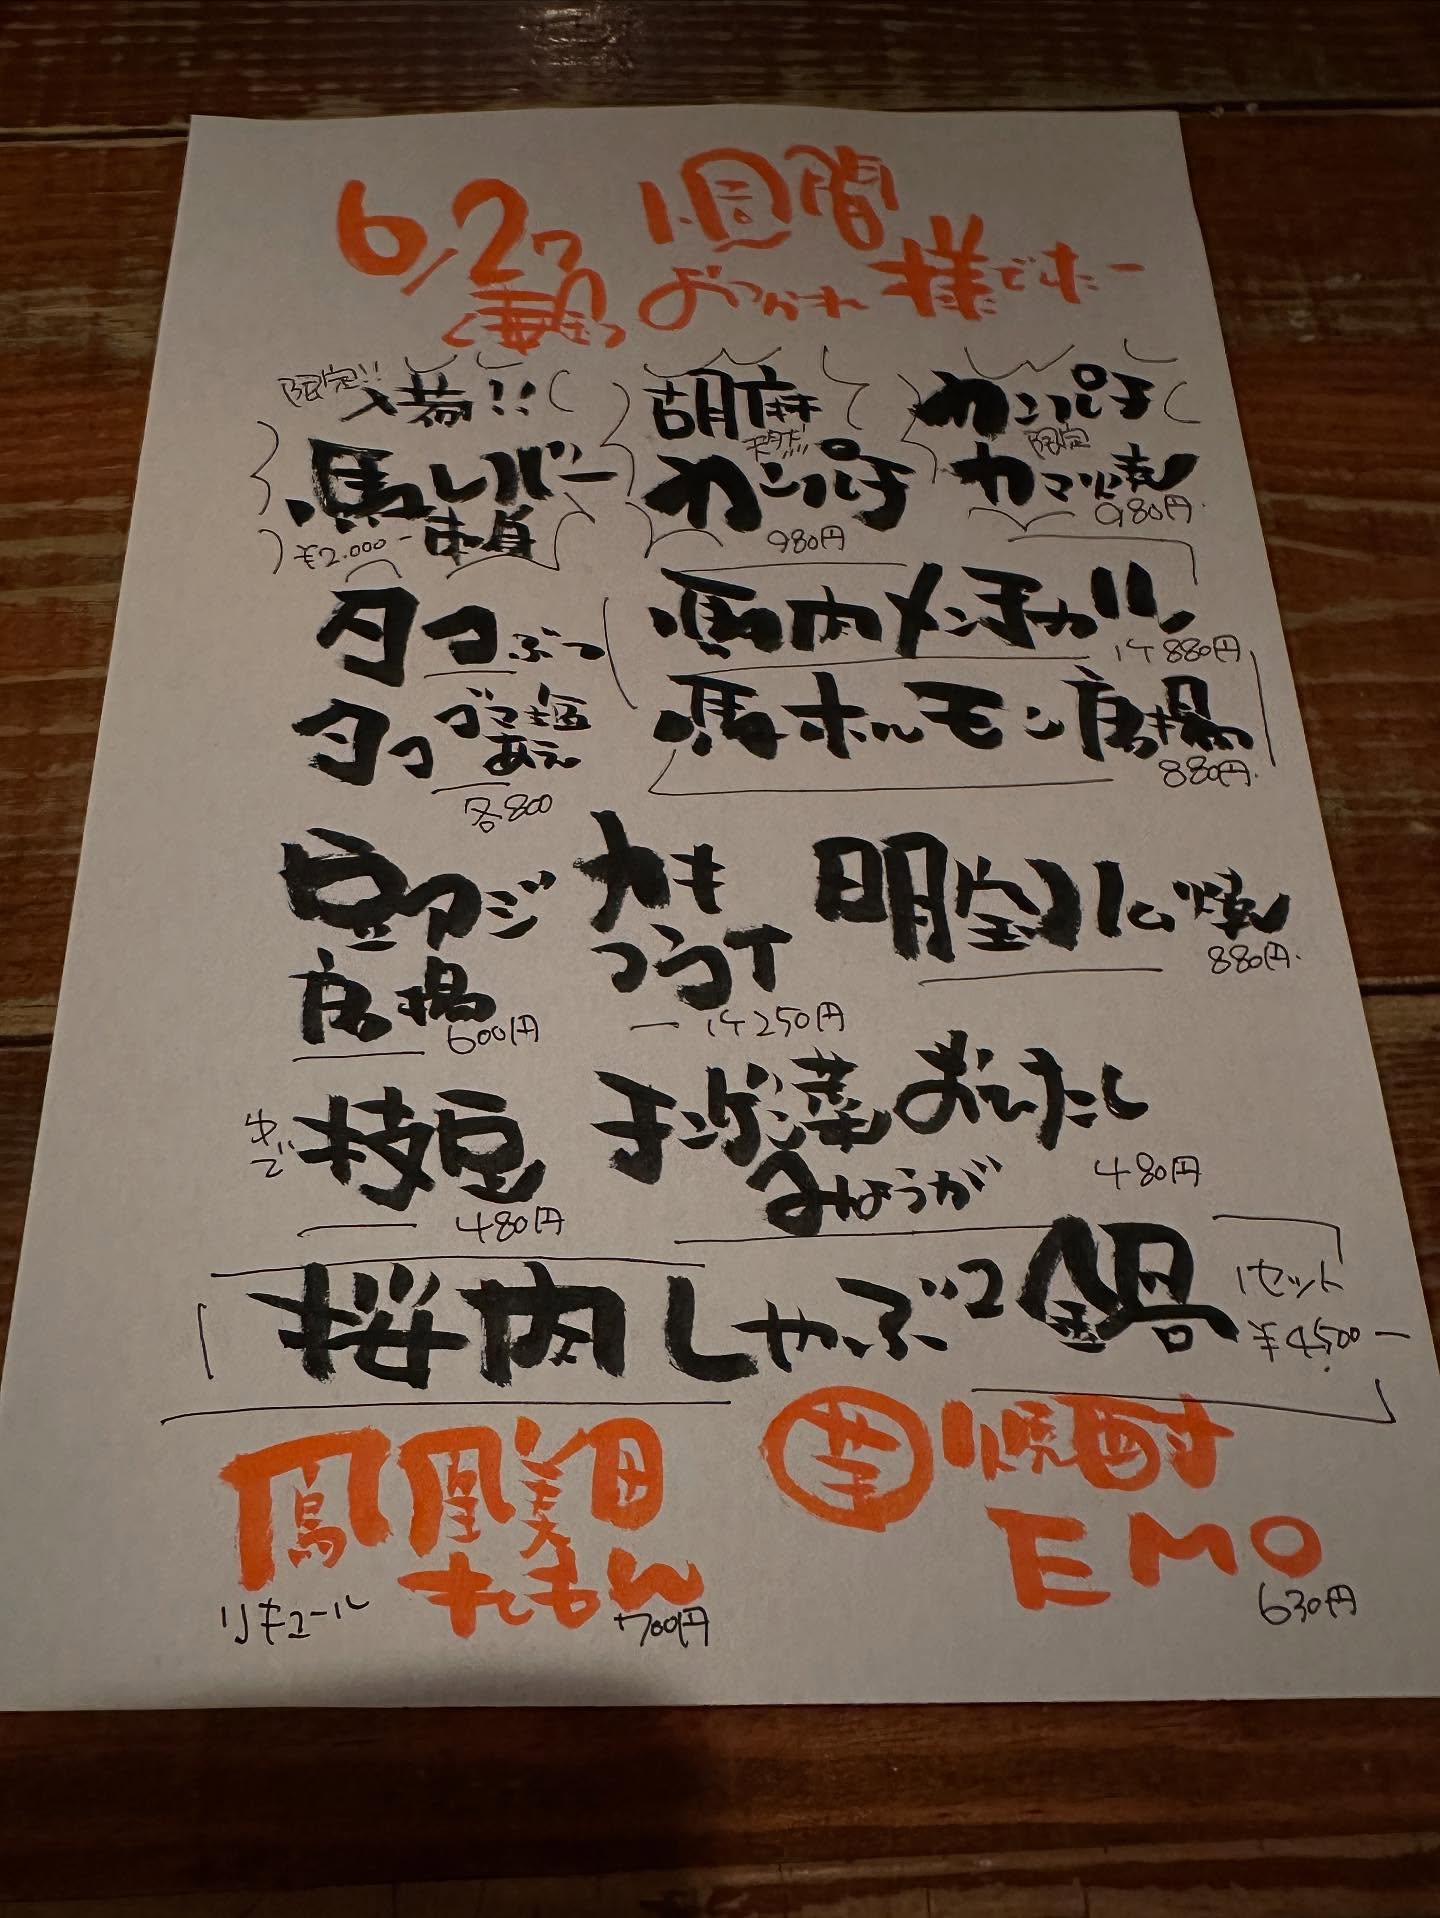 6/27 1週間
おつかれ様でしたー
限定!! 入荷!!
馬レバー
刺身
¥2.000-
胡麻
天然
カンパチ
980円
カンパチ
限定
カマ焼
980円.
タコぶつ
タコ ゴマ塩
あえ
各800
馬肉メンチカツ
1ケ880円
馬ホルモン唐揚
880円.
豆アジ
唐揚
600円
カキ
フライ
1ケ250円
明宝ハム焼
880円.
ゆで 枝豆
480円
チンゲン菜おひたし
みょうが
480円
桜肉しゃぶ2鍋
1セット
¥4,500-
鳳凰美田
れもん
リキュール
700円
芋 焼酎
EMO
630円